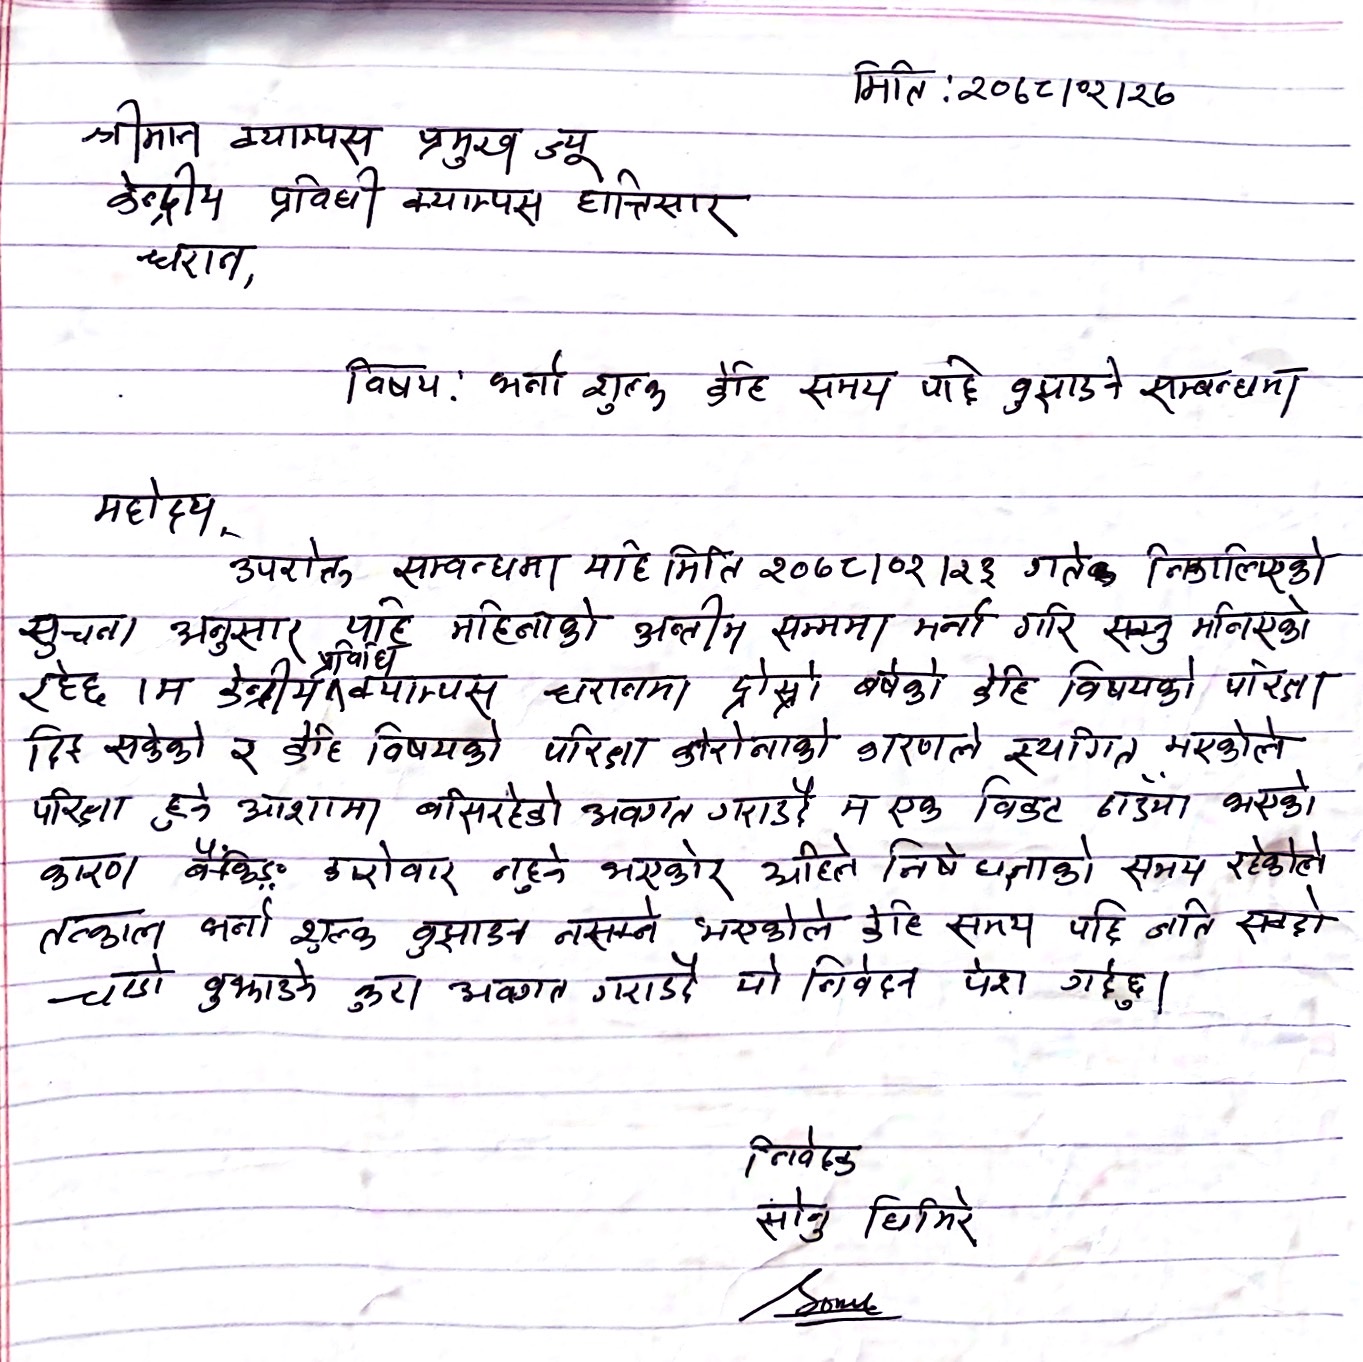 मिति : २०७८।०२।२७
श्रीमान क्याम्पस प्रमुख ज्यू
केन्द्रीय प्रविधी क्याम्पस हात्तिसार
धरान,
विषय: भर्ना शुल्क केहि समय पछि वुझाउने सम्बन्धमा
महोदय,
उपरोक्त सम्वन्धमा यहि मिति २०७८।०२।२३ गतेक निकालिएको
सुचना अनुसार यहि महिनाको अन्तीम सम्ममा भर्ना गरि सक्नु भनिएको
रहेछ ।म केन्द्रीय प्रविधि क्याम्पस धरानमा दोस्रो बर्षको केहि विषयको परिक्षा
दिइ सकेको र केहि विषयको परिक्षा कोरोनाको कारणले स्थगित भएकोले
परिक्षा हुने आशामा बसिरहेको अवगत गराउदै म एक विकट ठाउँमा भएको
कारण बैंकिङ्ग कारोवार नहुने भएकोर अहिले निषेधाज्ञाको समय रहेकोले
तत्काल भर्ना शुल्क वुझाउन नसक्ने भएकोले केहि समय पछि जति सक्दो
चाडो वुझाउने कुरा अवगत गराउदै यो निवेदन पेश गर्दछु।
निवेदक
सोनु घिमिरे
Sonu